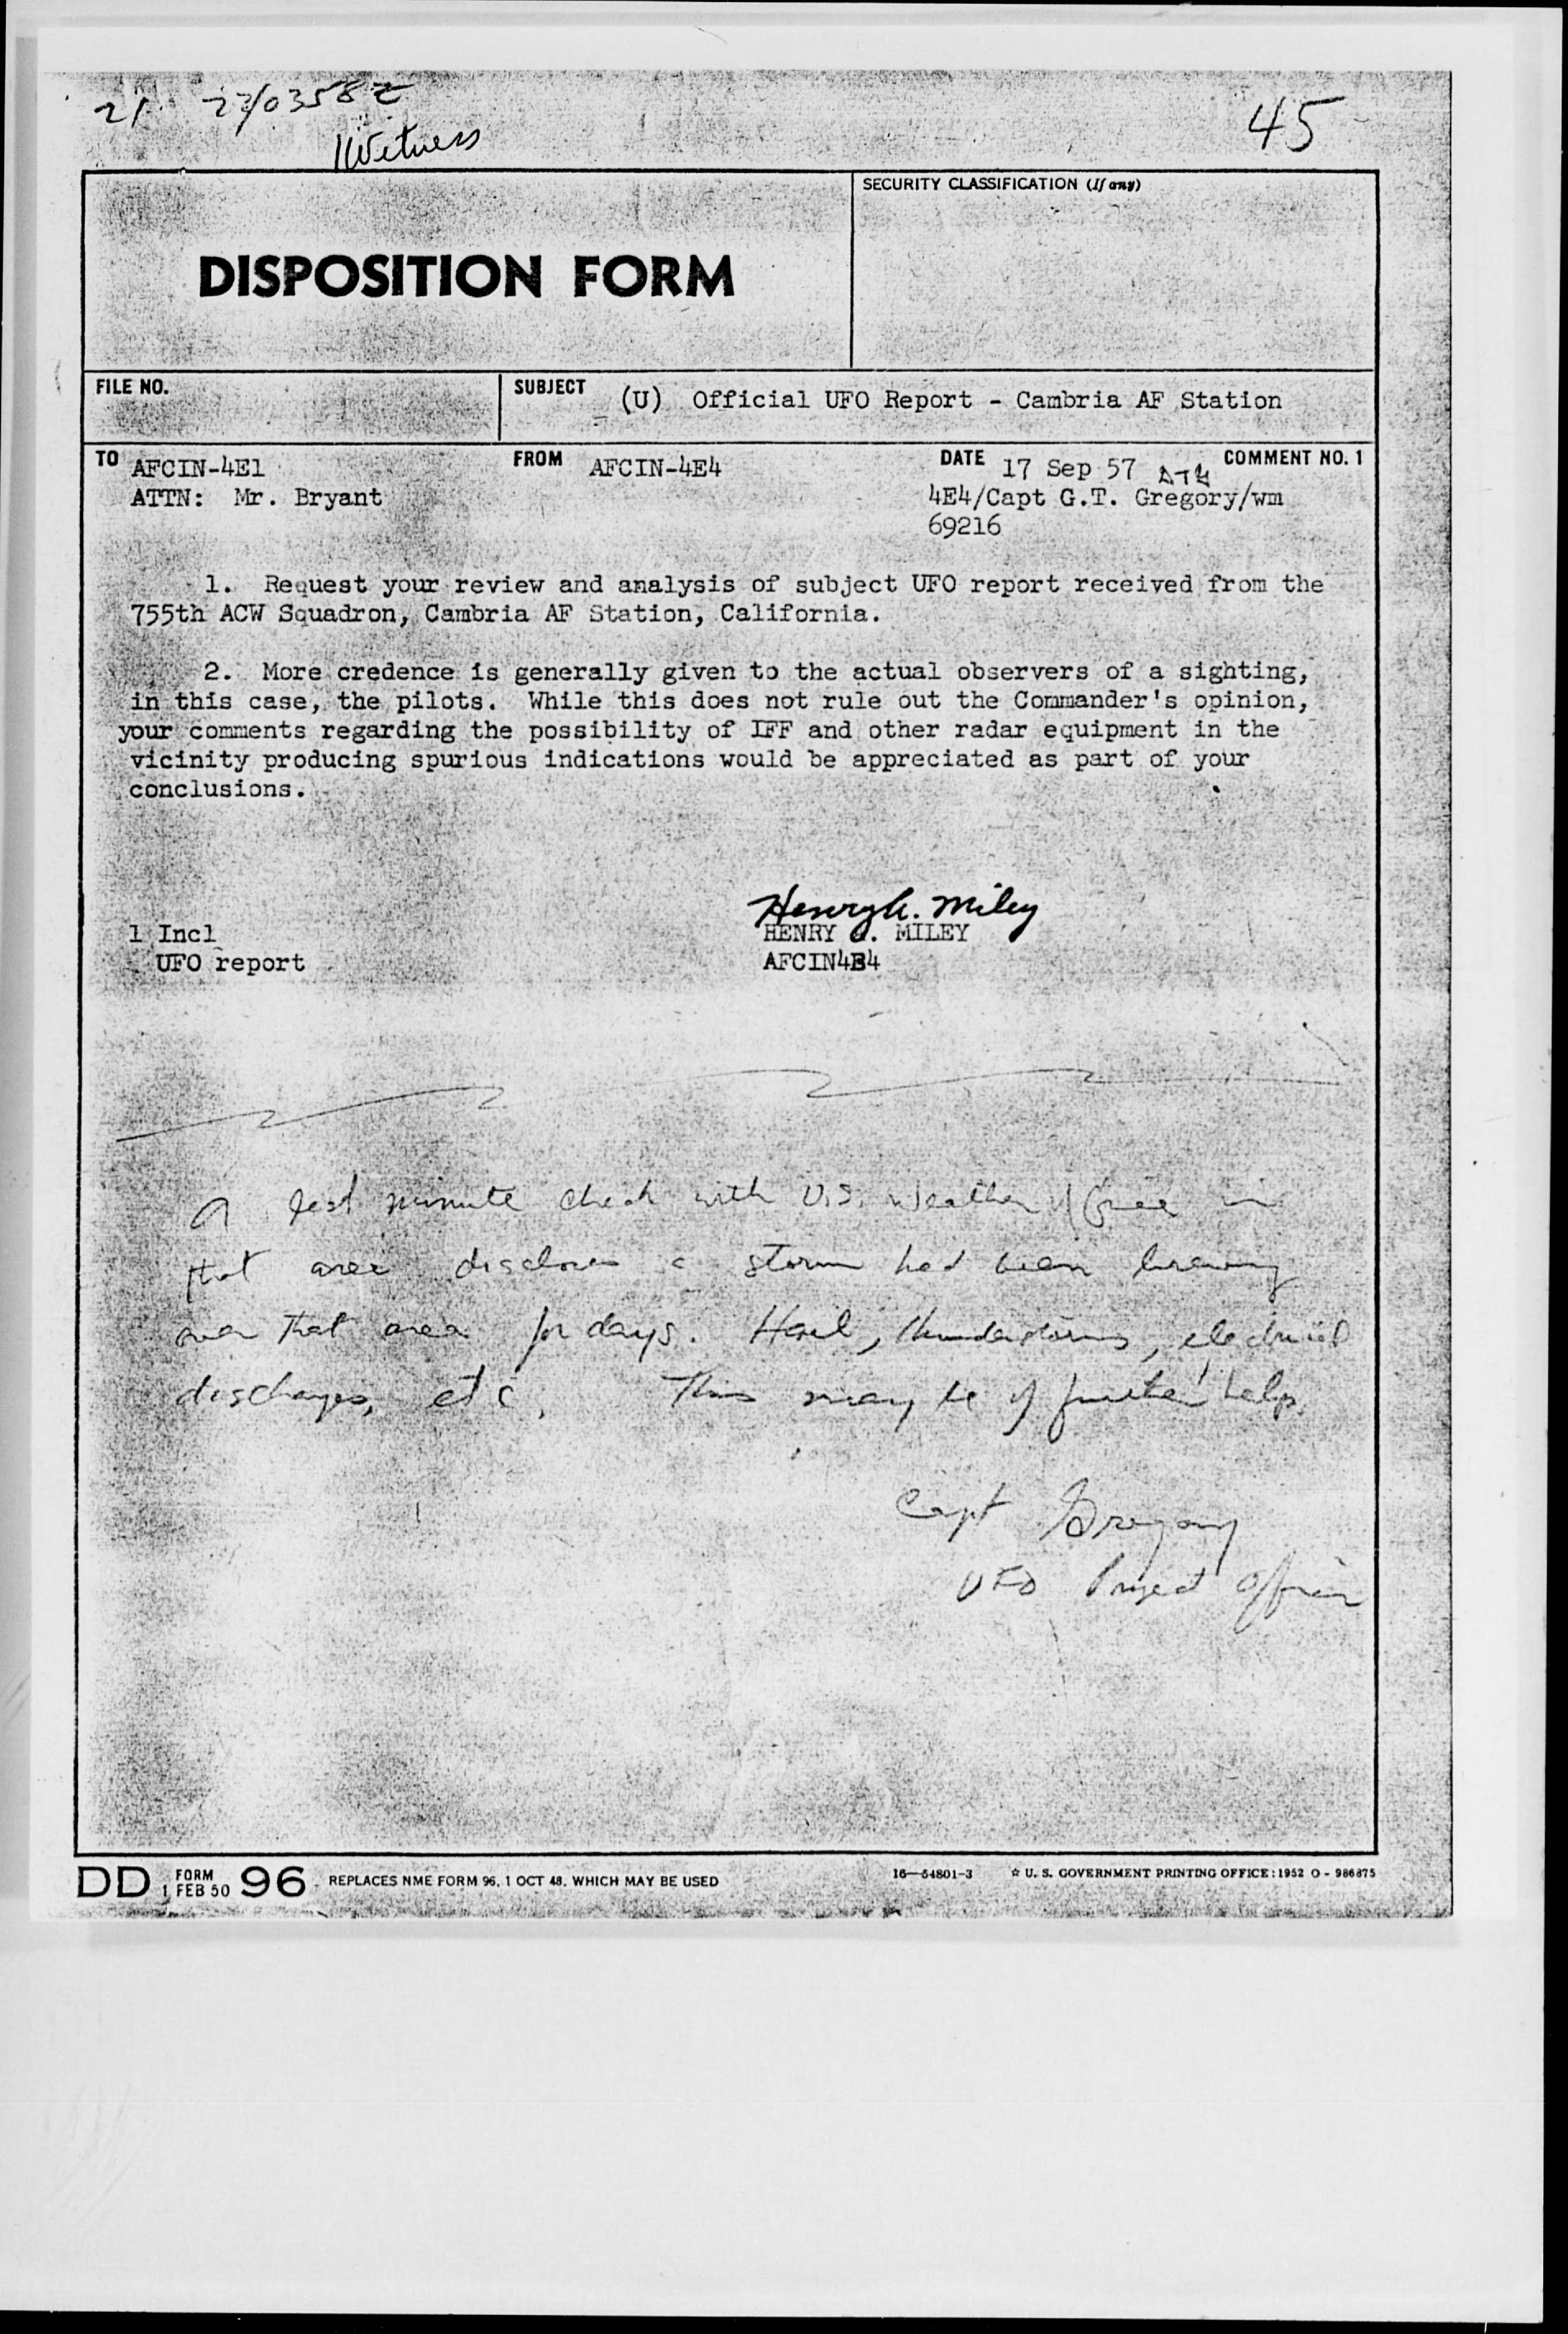 21 23/0358Z
Witness
45
DISPOSITION FORM
SECURITY CLASSIFICATION (If any)
FILE NO.
SUBJECT (U) Official UFO Report - Cambria AF Station
TO AFCIN-4E1 FROM AFCIN-4E4 DATE 17 Sep 57 COMMENT NO. 1
ATTN: Mr. Bryant 4E4/Capt G.T. Gregory/wm
69216
1. Request your review and analysis of subject UFO report received from the
755th ACW Squadron, Cambria AF Station, California.
2. More credence is generally given to the actual observers of a sighting,
in this case, the pilots. While this does not rule out the Commander's opinion,
your comments regarding the possibility of IFF and other radar equipment in the
vicinity producing spurious indications would be appreciated as part of your
conclusions.
Henry A. Miley
1 Incl HENRY A. MILEY
UFO report AFCIN4E4
A last minute check with U.S. Weather Office in
that area discloses a storm had been brewing
over that area for days. Hail, thunderstorms, electrical
discharges, etc. This may be of further help.
Capt Gregory
UFO Project Officer
DD FORM 1 FEB 50 96 REPLACES NME FORM 96, 1 OCT 48, WHICH MAY BE USED 16—54801-3 ☆ U. S. GOVERNMENT PRINTING OFFICE: 1952 O - 986875